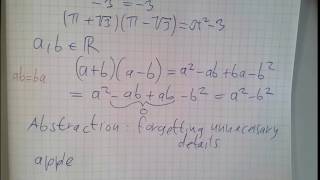 -3 = -3
(π + √3)(π - √3) = π² - 3
a, b ∈ ℝ
ab = ba
(a+b)(a-b) = a² - ab + ba - b²
= a² - ab + ab - b² = a² - b²
0
Abstraction: forgetting unnecessary
details
apple